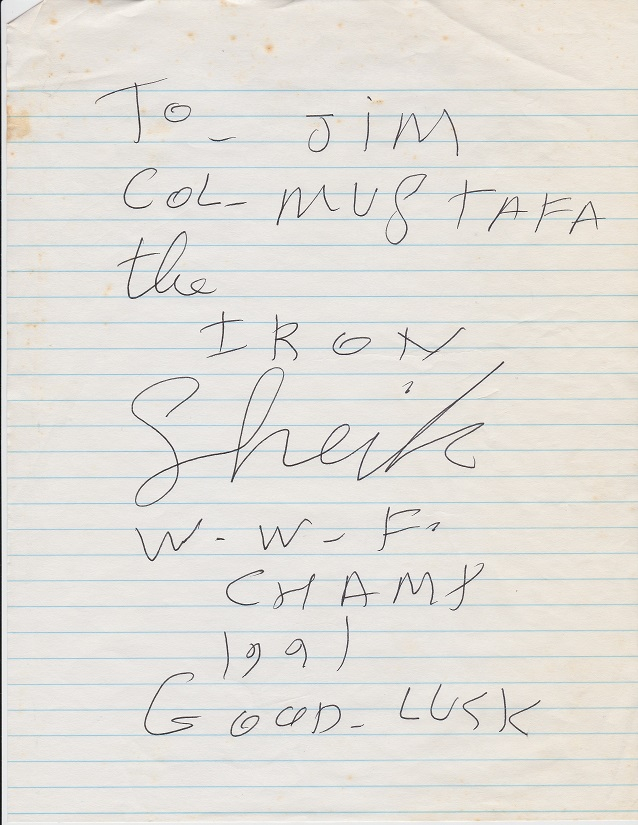 To- JIM
COL- MUSTAFA
the
IRON
Sheik
W-W-F.
CHAMP
1991
GOOD- LUSK